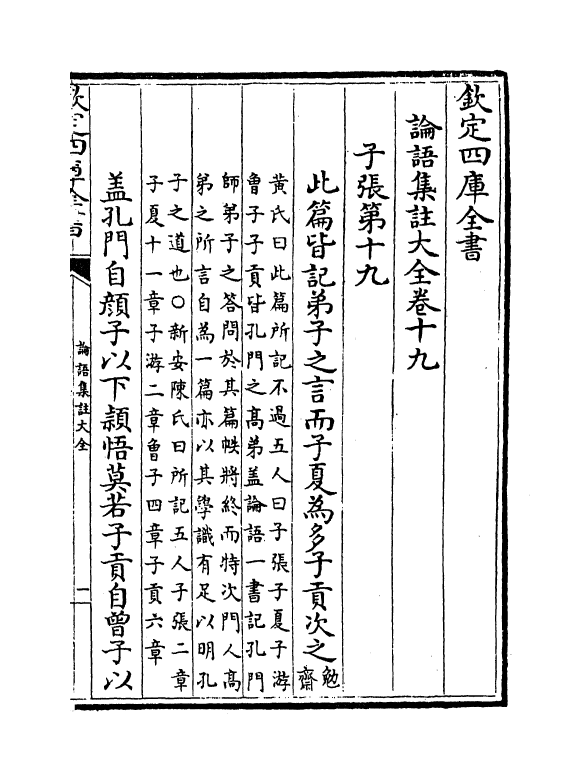 欽定四庫全書
論語集註大全卷十九
子張第十九
此篇皆記弟子之言而子夏為多子貢次之勉齋
黃氏曰此篇所記不過五人曰子張子夏子游
曾子子貢皆孔門之高弟盖論語一書記孔門
師弟子之答問於其篇帙將終而特次門人高
弟之所言自為一篇亦以其學識有足以明孔
子之道也○新安陳氏曰所記五人子張二章
子夏十一章子游二章曾子四章子貢六章
盖孔門自顔子以下頴悟莫若子貢自曾子以
欽定四庫全書
論語集註大全